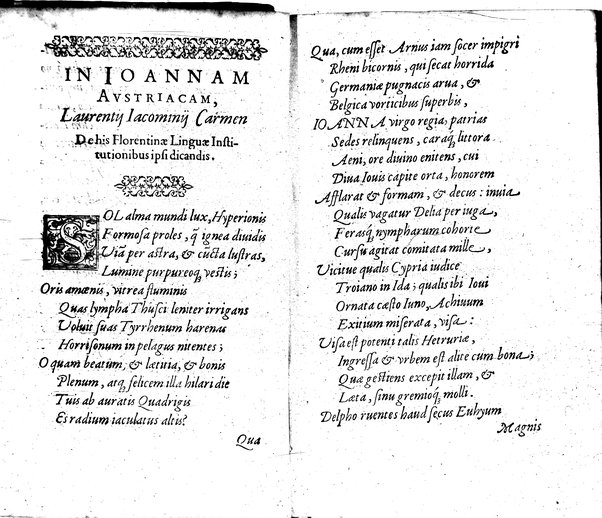 IN IOANNAM
AVSTRIACAM,
Laurentij Iacominij Carmen
De his Florentinæ Linguæ Insti-
tutionibus ipsi dicandis.
SOL alma mundi lux, Hyperionis
Formosa proles, q̃ ignea diuidis
Viã per astra, & cũcta lustras,
Lumine purpureoq́; vestis;
Oris amœnis, vitrea fluminis
Quas lympha Thusci leniter irrigans
Voluit suas Tyrrhenum harenas
Horrisonum in pelagus nitentes;
O quam beatum, & lætitia, & bonis
Plenum, atq́; felicem illa hilari die
Tuis ab auratis Quadrigis
Es radium iaculatus altis?
Qua
Qua, cum esset Arnus iam socer impigri
Rheni bicornis, qui secat horrida
Germaniæ pugnacis arua, &
Belgica vorticibus superbis,
IOANNA virgo regia; patrias
Sedes relinquens, caraq́; littora
Aeni, ore diuino enitens, cui
Diua Iouis capite orta, honorem
Afflarat & formam, & decus: inuia
Qualis vagatur Delia per iuga,
Ferasq́; nympharum cohorte
Cursu agitat comitata mille,
Vicitue qualis Cypria iudice
Troiano in Ida; qualis ibi Ioui
Ornata cæsto Iuno, Achiuum
Exitium miserata, visa:
Visa est potenti talis Hetruriæ,
Ingressa & vrbem est alite cum bona;
Quæ gestiens excepit illam, &
Læta, sinu gremioq́; molli.
Delpho ruentes haud secus Euhyum
Magnis